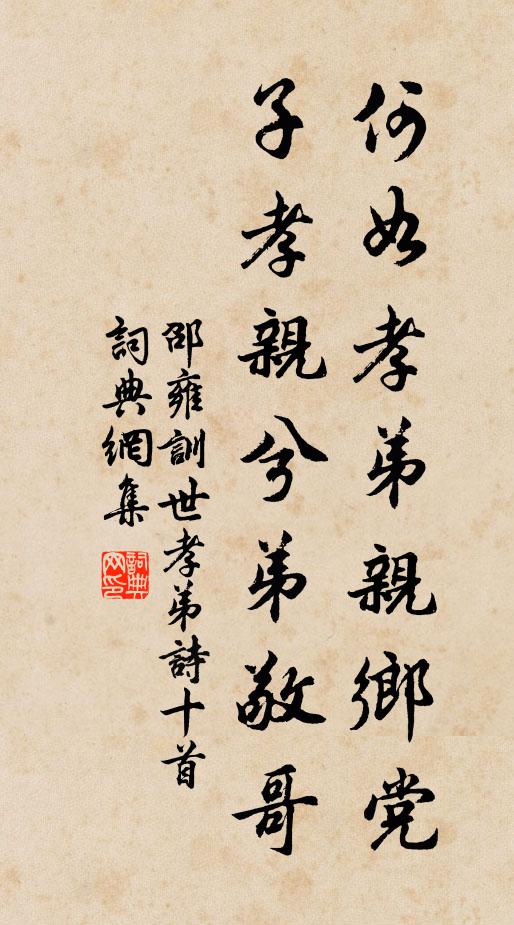 何如孝弟親鄉党
子孝親兮弟敬哥
邵雍訓世孝弟詩十首
詞典網集
詞典網印